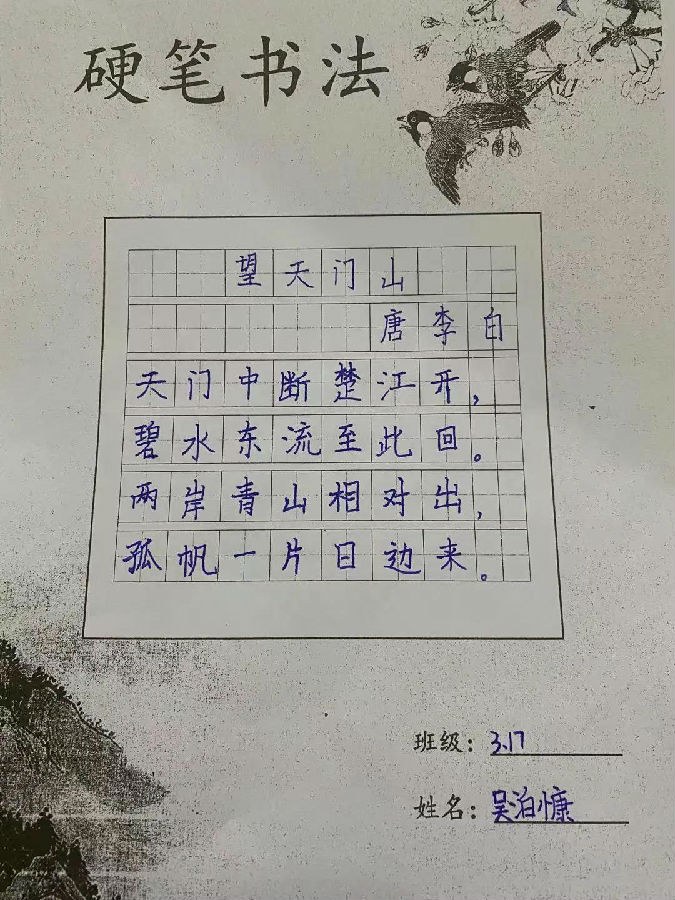 硬笔书法
望天门山
唐李白
天门中断楚江开，
碧水东流至此回。
两岸青山相对出，
孤帆一片日边来。
班级：3.17
姓名：吴泊慷